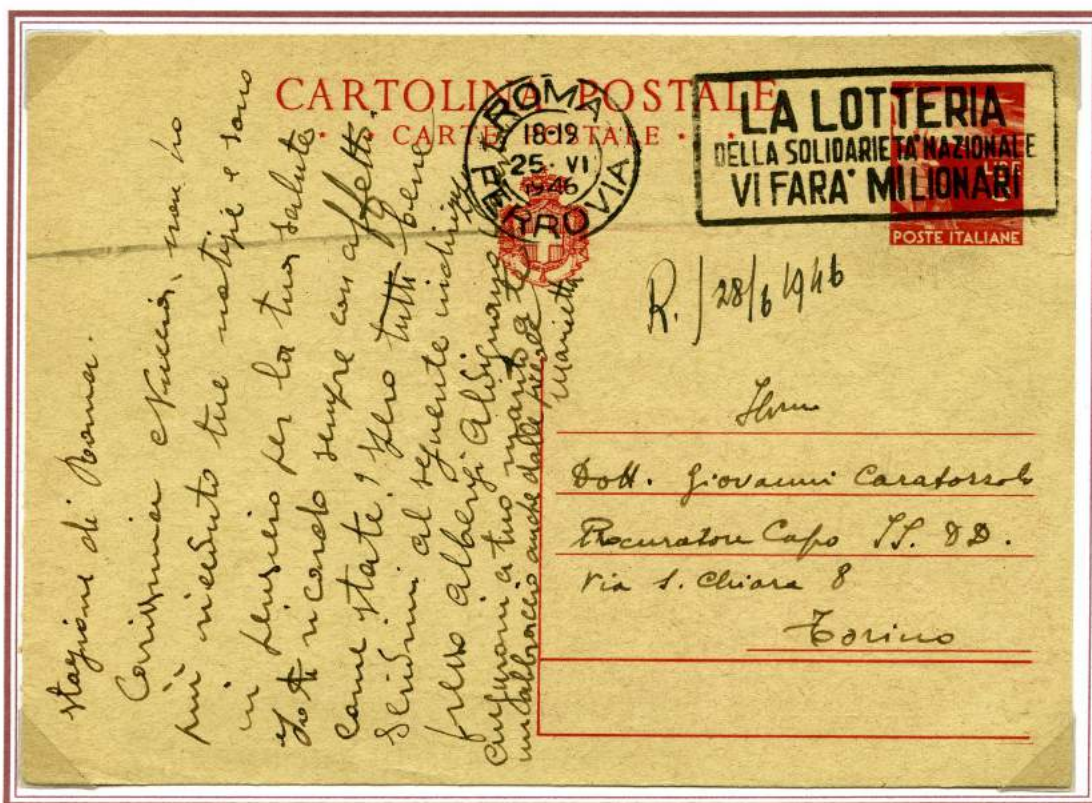 CARTOLINA POSTALE
· CARTE POSTALE ·
ROMA FERROVIA
18-19
25 · VI
1946
LA LOTTERIA
DELLA SOLIDARIETA' NAZIONALE
VI FARA' MILIONARI
LIRE
POSTE ITALIANE
R. / 28/6 1946
Dott. Giovanni Caratozzolo
Procuratore Capo II. DD.
Via S. Chiara 8
Torino
stazione di Roma.
Carissima Nuccia, non ho
più ricevuto tue notizie e sono
in pensiero per la tua salute
Io ti ricordo sempre con affetto.
come state? spero tutti bene
Scrivimi al seguente indirizzo
presso alberghi
a tuo marito a te
un abbraccio anche dalle
Marietta